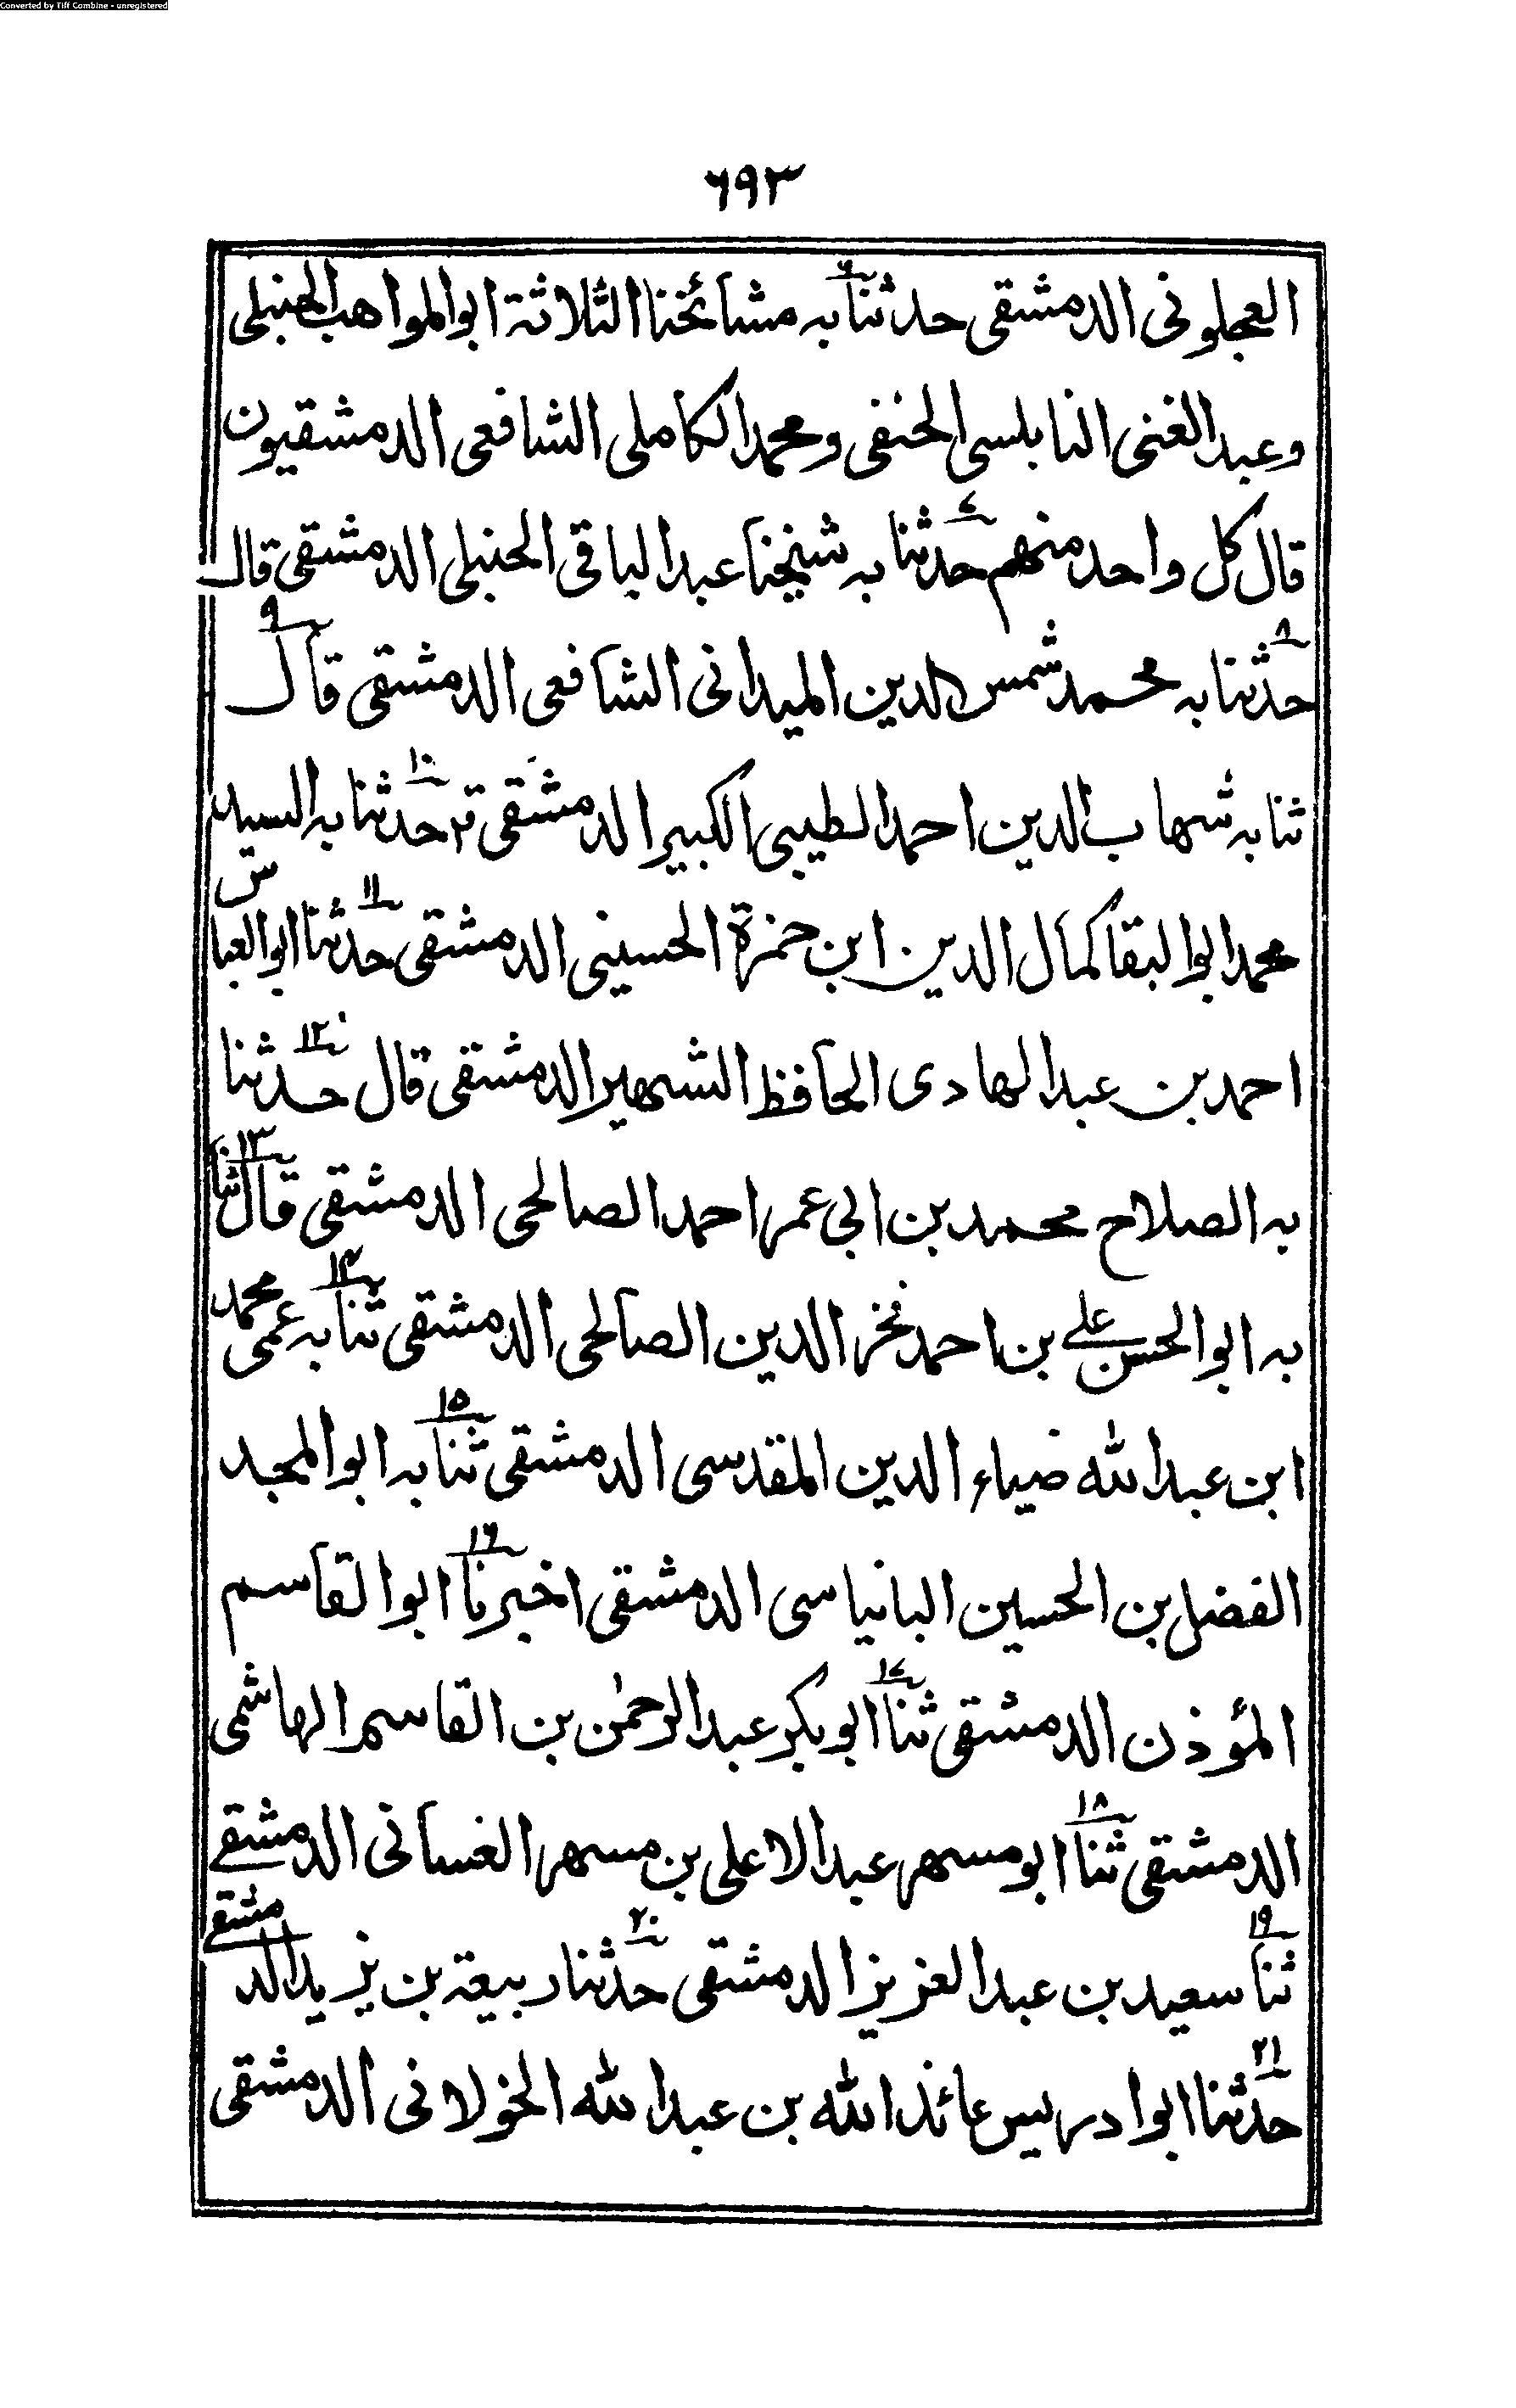 Converted by Tiff Combine - unregistered
٦٩٣
العجلونی الدمشقی حدثنا۶ به مشائخنا الثلاثة ابو المواهب الحنبلی
وعبد الغنی النابلسی الحنفی ومحمد الکاملی الشافعی الدمشقیون
قال کل واحد منهم حدثنا۷ به شیخنا عبد الباقی الحنبلی الدمشقی قال
حدثنا۸ به محمد شمس الدین المیدانی الشافعی الدمشقی قال۹
ثنا به شهاب الدین احمد الطیبی الکبیر الدمشقی حدثنا۱۰ به السید
محمد ابو البقا کمال الدین ابن حمزة الحسینی الدمشقی حدثنا۱۱ ابو العباس
احمد بن عبد الهادی الحافظ الشهیر الدمشقی قال حدثنا۱۲
به الصلاح محمد بن ابی عمر احمد الصالحی الدمشقی قال ثنا۱۳
به ابو الحسن علی بن احمد فخر الدین الصالحی الدمشقی ثنا۱۴ به عمی محمد
ابن عبد الله ضیاء الدین المقدسی الدمشقی ثنا۱۵ به ابو المجد
الفضل بن الحسین البانیاسی الدمشقی اخبرنا۱۶ ابو القاسم
المؤذن الدمشقی ثنا۱۷ ابو بکر عبد الرحمٰن بن القاسم الهاشمی
الدمشقی ثنا۱۸ ابو مسهر عبد الاعلی بن مسهر الغسانی الدمشقے
ثنا۱۹ سعید بن عبد العزیز الدمشقی حدثنا۲۰ ربیعة بن یزید الدمشقے
حدثنا۲۱ ابو ادریس عائذ الله بن عبد الله الخولانی الدمشقی